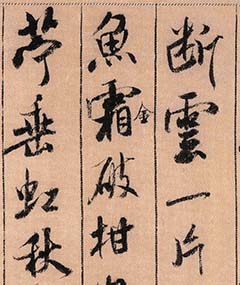 断雲一片
魚霜金破柑
苧垂虹秋